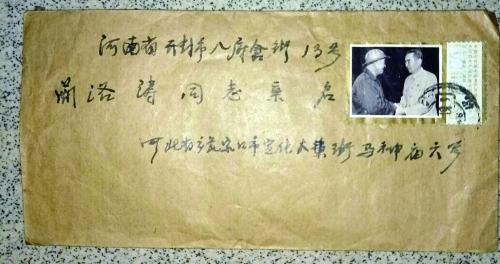 河南省开封市八府仓街13号
蔺洛涛同志
启
河北省张家口市宣化大镇街马神庙六号